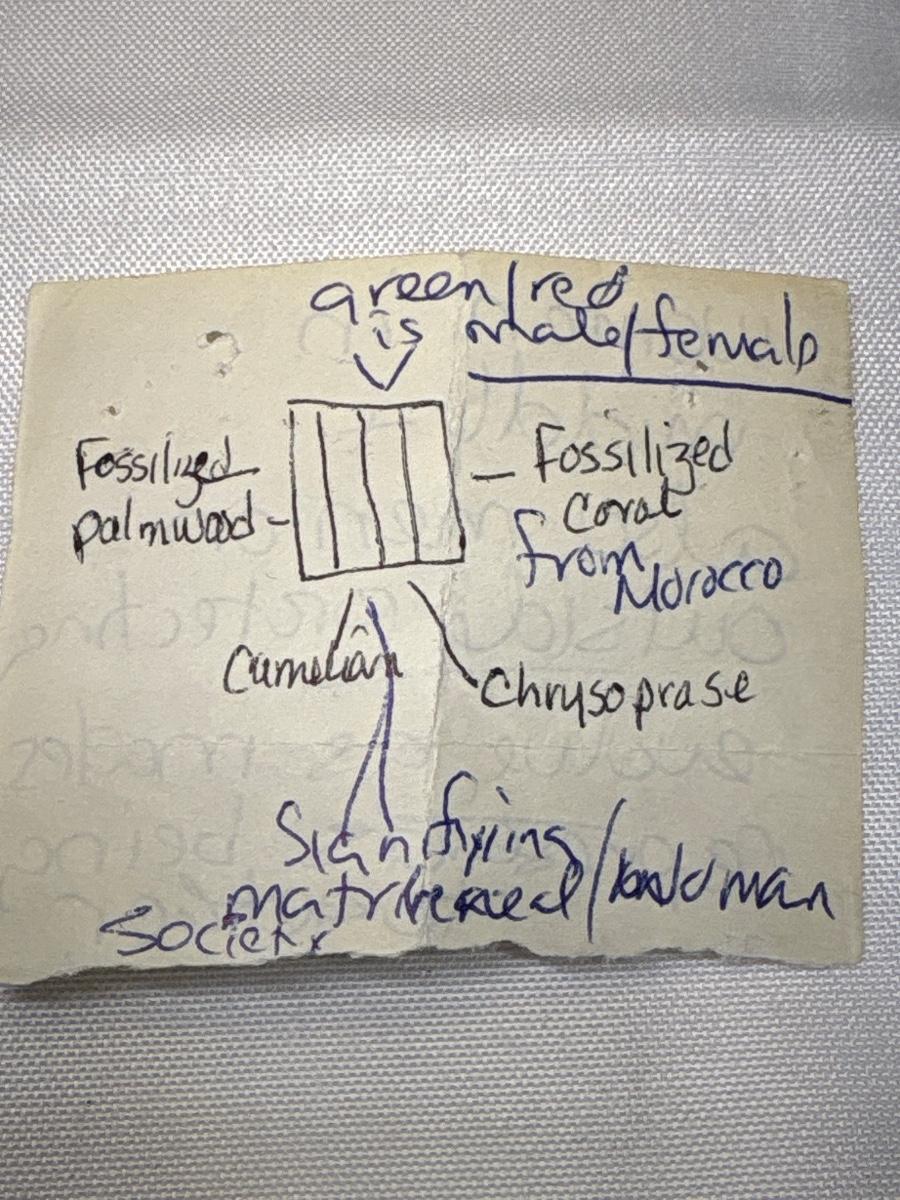 green/red
is male/female
Fossilized
palmwood
Fossilized
coral
from
Morocco
Carnelian
Chrysoprase
Signifying
/ man
Society